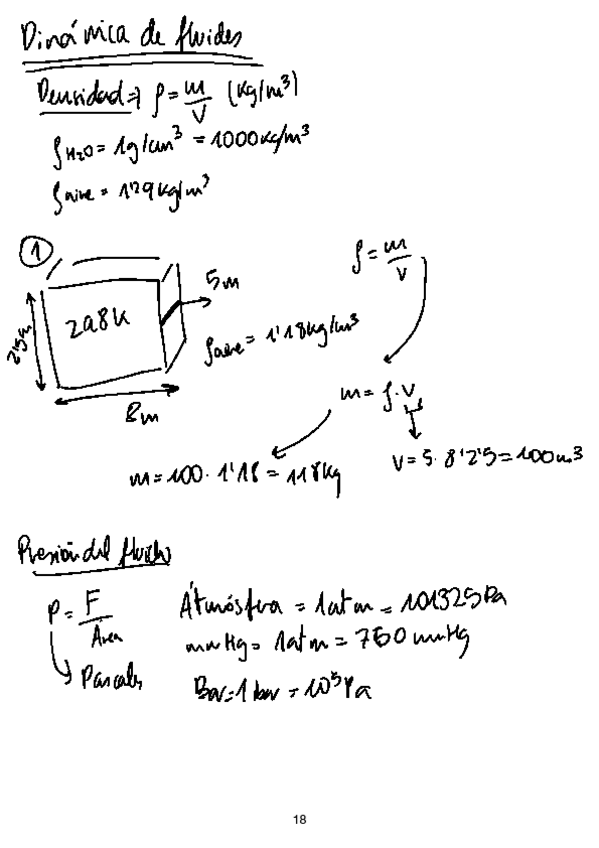 Dinámica de fluidos
Densidad ⇒ ρ = m/V (Kg/m³)
ρH₂O = 1g/cm³ = 1000 Kg/m³
ρaire = 1'29 Kg/m³
1
298K
5m
2'5m
8m
ρaire = 1'18 Kg/m³
ρ = m/V
m = ρ·V
V = 5·8'2'5 = 100 m³
m = 100·1'18 = 118 Kg
Presión del fluido
P = F/Área
Pascales
Átmósfera = 1 atm = 101325 Pa
mmHg = 1 atm = 760 mmHg
Bar = 1 bar = 10⁵ Pa
18